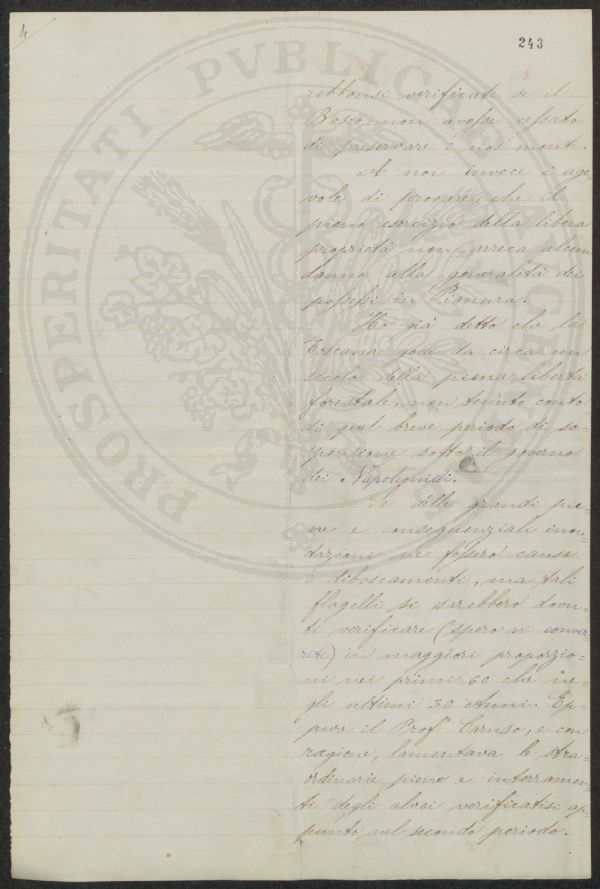 4
243
PROSPERITATI PVBLICAE
rebbonsi verificati se il
Bosco non avesse cessato
di preservare i nosi monti.
A noi invece è age=
vole di provare, che il
pieno esercizio della libera
proprietà non arreca alcun
danno alla generalità dei
possessi in Pianura.
Ho già detto che la
Toscana gode da circa un
secolo della piena libertà
forestale, non tenuto conto
di quel breve periodo di so=
spensione sotto il governo
dei Napoleonidi.
Se delle grandi pie=
ne e conseguenziali inon=
dazioni ne fossero causa
i diboscamenti, ma tali
flagelli si sarebbero dovu=
ti verificare (spero ne conver=
rete) in maggiori proporzio=
ni nei primi 60 che ne=
gli ultimi 30 Anni. Ep=
pure il Prof. Caruso, e con
ragione, lamentava le stra=
ordinarie piene e interramen=
ti degli alvei verificatisi ap=
punto nel secondo periodo.